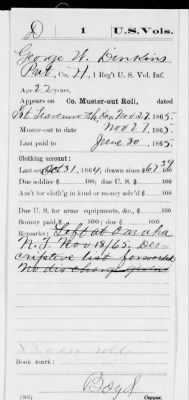 D 1 U.S. Vols.
George W. Denkins
Pvt., Co. H, 1 Reg't U. S. Vol. Inf.
Age 22 years.
Appears on Co. Muster-out Roll, dated
Ft Leavenworth, Kan Nov 27, 1865.
Muster-out to date Nov 27, 1865.
Last paid to June 30, 1865.
Clothing account:
Last settled Oct 31, 1864; drawn since $67 39/100
Due soldier $ /100; due U. S. $ /100
Am't for cloth'g in kind or money adv'd $ /100
Due U. S. for arms, equipments, &c., $ /100
Bounty paid $ /100; due $ /100
Remarks: Left at Omaha
N.T. Nov 18/65. Des-
criptive list forwarded
No discharge given
Book mark:
Boyd
Copyist.